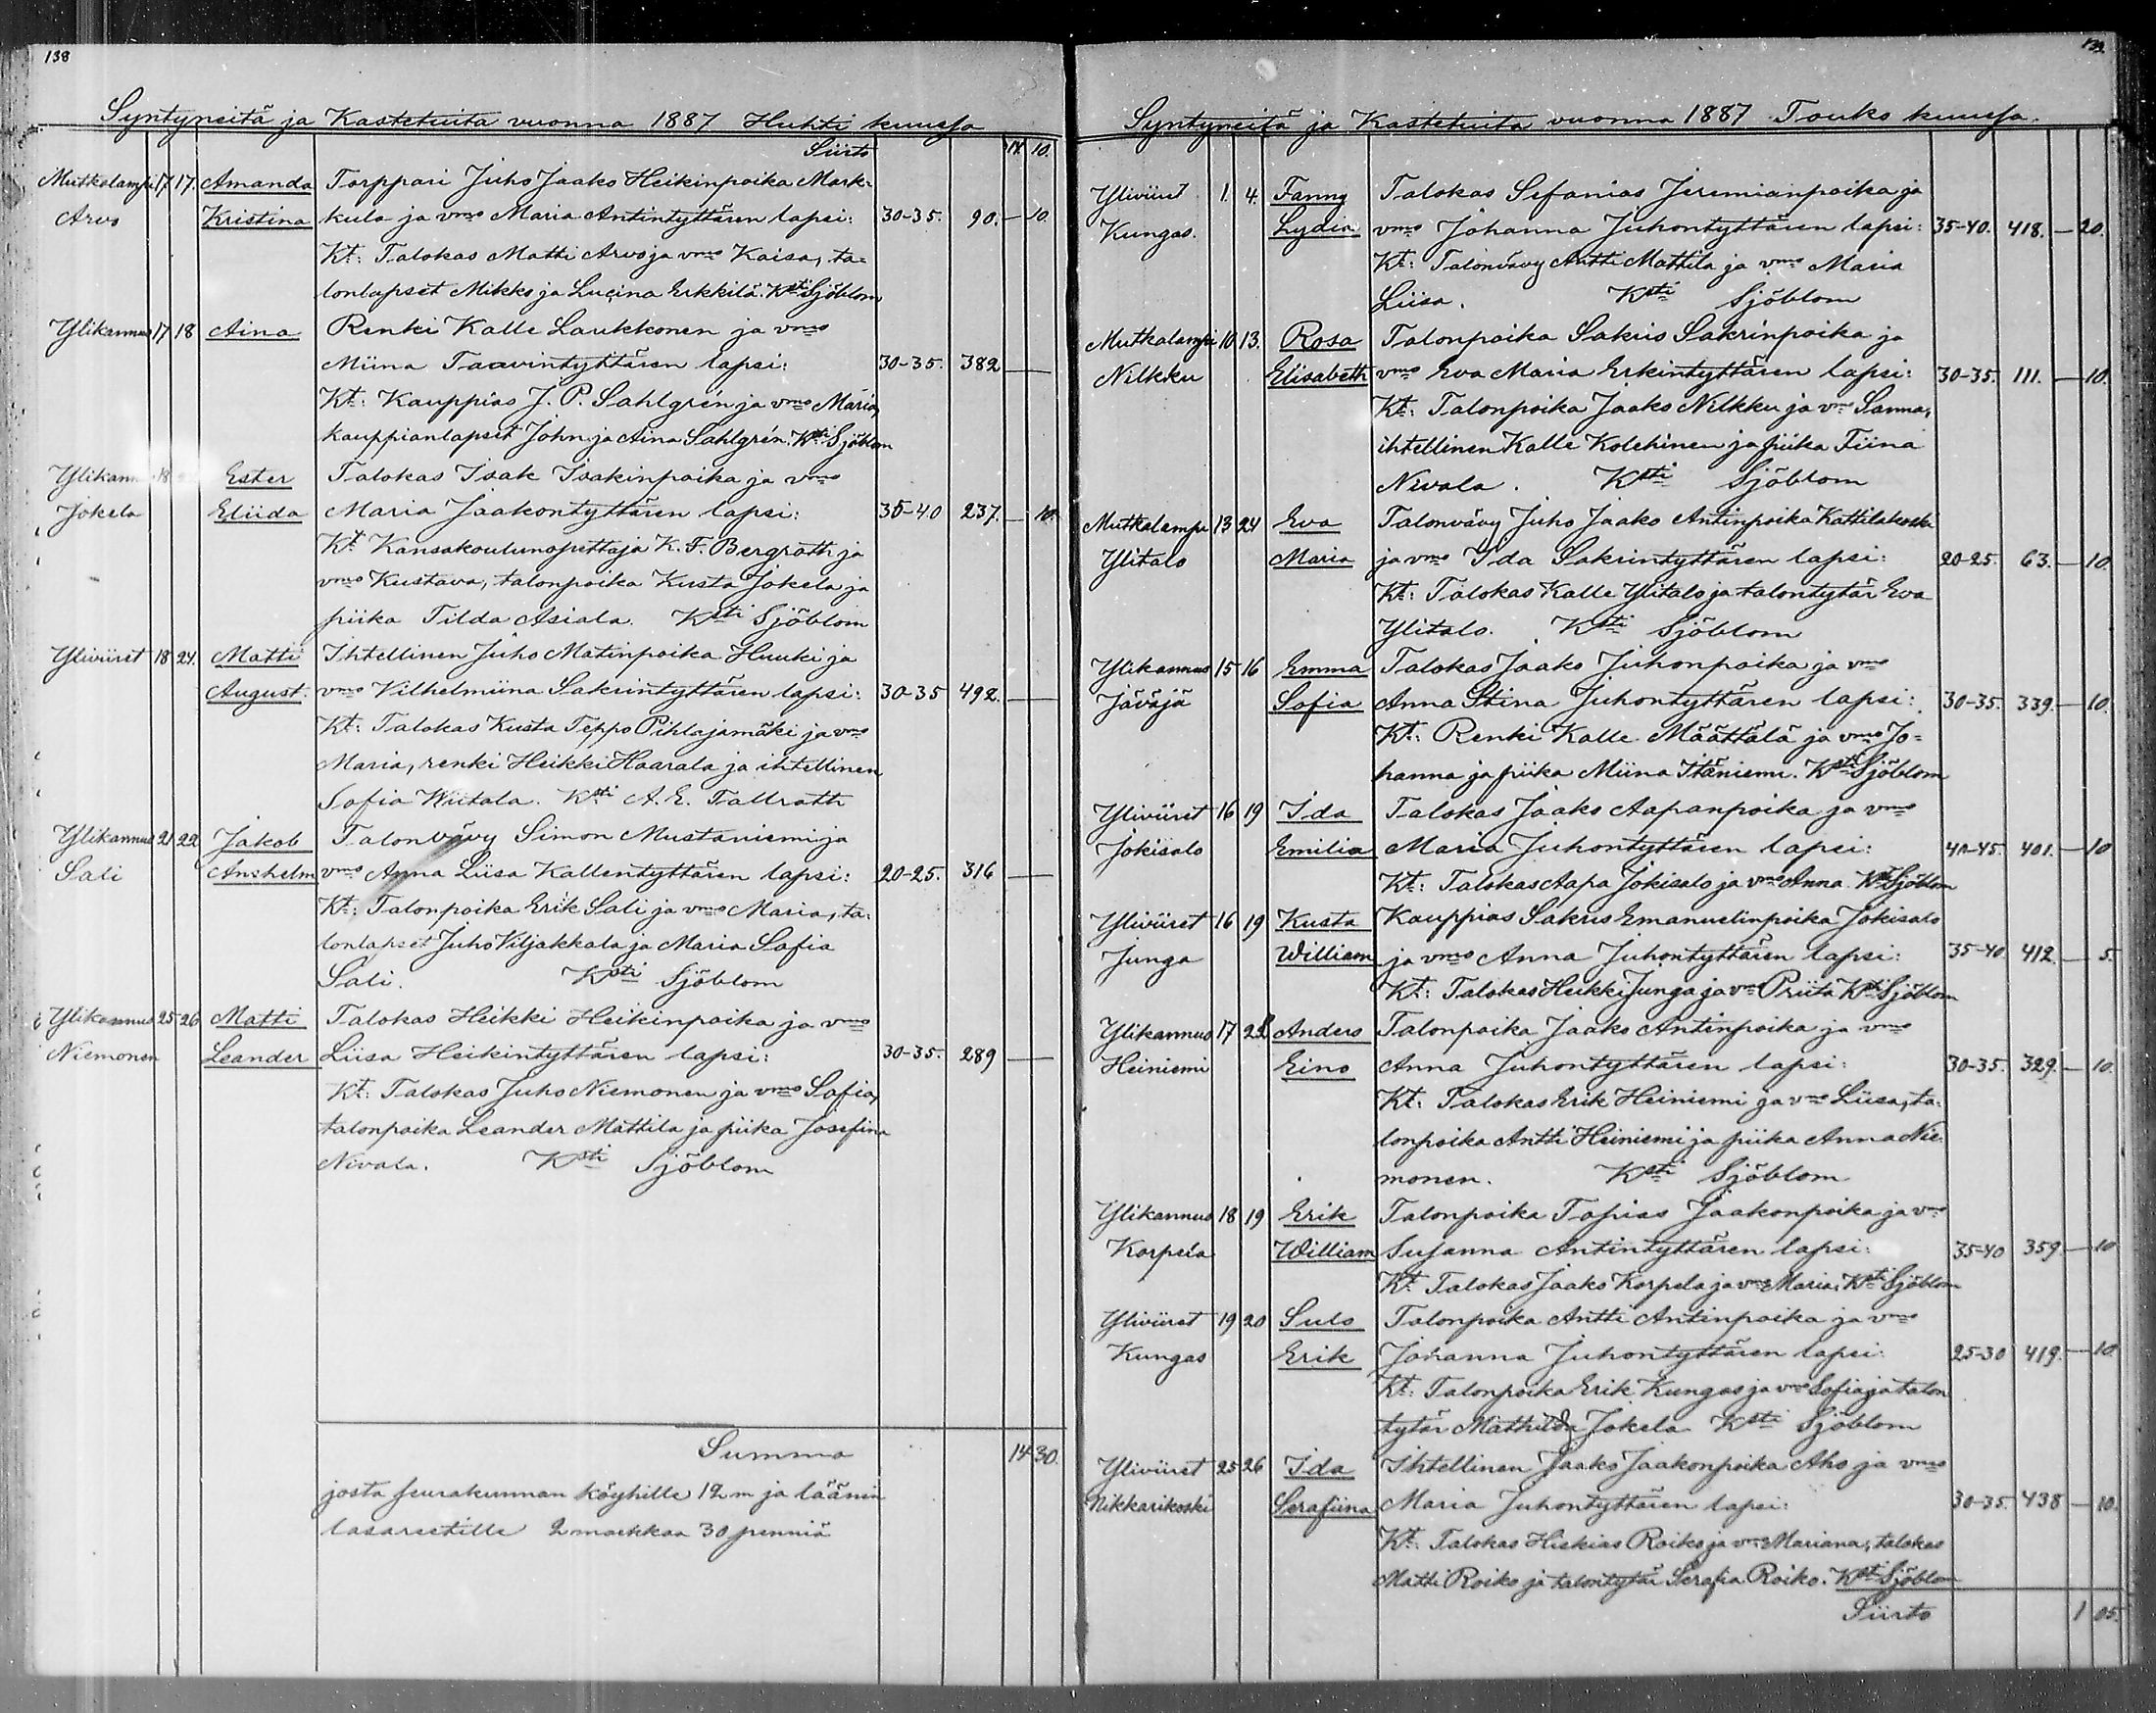 138
Syntyneitä ja Kastetuita vuonna 1887 Huhti kuussa
Siirto 14 10.
Mutkalampi 17 17. Amanda Torppari Juho Jaako Heikinpoika Mark-
Arvo Kristina kula ja vmo Maria Antintyttären lapsi: 30-35. 90. — 10.
Kt: Talokas Matti Arvo ja vmo Kaisa, ta-
lonlapset Mikko ja Lucina Erkkilä. Ksti Sjöblom
Ylikannus 17 18 Aina Renki Kalle Laukkonen ja vmo
Miina Taavintyttären lapsi: 30-35. 382 —
Kt: Kauppias J. P. Sahlgrén ja vmo Maria,
kauppianlapset John ja Aina Sahlgrén. Ksti Sjöblom
Ylikann 18 Ester Talokas Isak Isakinpoika ja vmo
Jokela Eliida Maria Jaakontyttären lapsi: 35-40 237. — 10.
Kt Kansakoulunopettaja K. F. Bergroth ja
vmo Kustava, talonpoika Kusta Jokela ja
piika Tilda Asiala. Ksti Sjöblom
Yliviiret 18 24. Matti Ihtellinen Juho Matinpoika Huuki ja
August. vmo Vilhelmiina Sakrintyttären lapsi: 30-35 492. —
Kt: Talokas Kusta Teppo Pihlajamäki ja vmo
Maria, renki Heikki Haarala ja ihtellinen
Sofia Wiitala. Ksti A. E. Tallroth
Ylikannus 21 22 Jakob Talonvävy Simon Mustaniemi ja
Sali Anshelm vmo Anna Liisa Kallentyttären lapsi: 20-25. 316 —
Kt: Talonpoika Erik Sali ja vmo Maria, ta-
lonlapset Juho Viljakkala ja Maria Sofia
Sali. Ksti Sjöblom
Ylikannus 25 26 Matti Talokas Heikki Heikinpoika ja vmo
Niemonen Leander Liisa Heikintyttären lapsi: 30-35. 289 —
Kt: Talokas Juho Niemonen ja vmo Sofia,
talonpoika Leander Mattila ja piika Josefina
Nivala. Ksti Sjöblom
Summa 14 30.
josta seurakunnan köyhille 12 m ja läänin
lasaretille 2 markkaa 30 penniä
139.
Syntyneitä ja Kastetuita vuonna 1887 Touko kuussa.
Yliviiret 1. 4. Fanny Talokas Sefanias Jeremianpoika ja
Kungas. Lydia vmo Johanna Juhontyttären lapsi: 35-40. 418. — 20.
Kt: Talonvävy Antti Mattila ja vmo Maria
Liisa. Ksti Sjöblom
Mutkalampi 10 13. Rosa Talonpoika Sakris Sakrinpoika ja
Nilkku Elisabeth vmo Eva Maria Erkintyttären lapsi: 30-35. 111. — 10.
Kt: Talonpoika Jaako Nilkku ja vmo Sanna,
ihtellinen Kalle Kolehinen ja piika Tiina
Nivala. Ksti Sjöblom
Mutkalampi 13 24 Eva Talonvävy Juho Jaako Antinpoika Kattilakoski
Ylitalo Maria ja vmo Ida Sakrintyttären lapsi: 20-25. 63. — 10
Kt: Talokas Kalle Ylitalo ja talontytär Eva
Ylitalo. Ksti Sjöblom
Ylikannus 15 16 Emma Talokas Jaako Juhonpoika ja vmo
Jäväjä Sofia Anna Stina Juhontyttären lapsi: 30-35. 339. — 10.
Kt: Renki Kalle Määttälä ja vmo Jo-
hanna ja piika Miina Itäniemi. Ksti Sjöblom
Yliviiret 16 19 Ida Talokas Jaako Aapanpoika ja vmo
Jokisalo Emilia Maria Juhontyttären lapsi: 40-45. 401. — 10
Kt: Talokas Aapa Jokisalo ja vmo Anna. Ksti Sjöblom
Yliviiret 16 19 Kusta Kauppias Sakris Emanuelinpoika Jokisalo
Junga William ja vmo Anna Juhontyttären lapsi: 35-40. 412. — 5.
Kt: Talokas Heikki Junga ja vmo Priita Ksti Sjöblom
Ylikannus 17 22 Anders Talonpoika Jaako Antinpoika ja vmo
Heiniemi Eino Anna Juhontyttären lapsi: 30-35. 329. — 10.
Kt: Talokas Erik Heiniemi ja vmo Liisa, ta-
lonpoika Antti Heiniemi ja piika Anna Nie-
monen. Ksti Sjöblom
Ylikannus 18 19 Erik Talonpoika Topias Jaakonpoika ja vmo
Korpela William Susanna Antintyttären lapsi: 35-40 359. — 10
Kt: Talokas Jaako Korpela ja vmo Maria. Ksti Sjöblom
Yliviiret 19 20 Sulo Talonpoika Antti Antinpoika ja vmo
Kungas Erik Johanna Juhontyttären lapsi: 25-30 419. — 10
Kt: Talonpoika Erik Kungas ja vmo Sofia ja talon
tytär Mathilda Jokela Ksti Sjöblom
Yliviiret 25 26 Ida Ihtellinen Jaako Jaakonpoika Aho ja vmo
Nikkarikoski Serafiina Maria Juhontyttären lapsi: 30-35. 438 — 10.
Kt: Talokas Hiskias Roiko ja vmo Mariana, talokas
Matti Roiko ja talontytär Serafia Roiko. Ksti Sjöblom
Siirto 1 05.